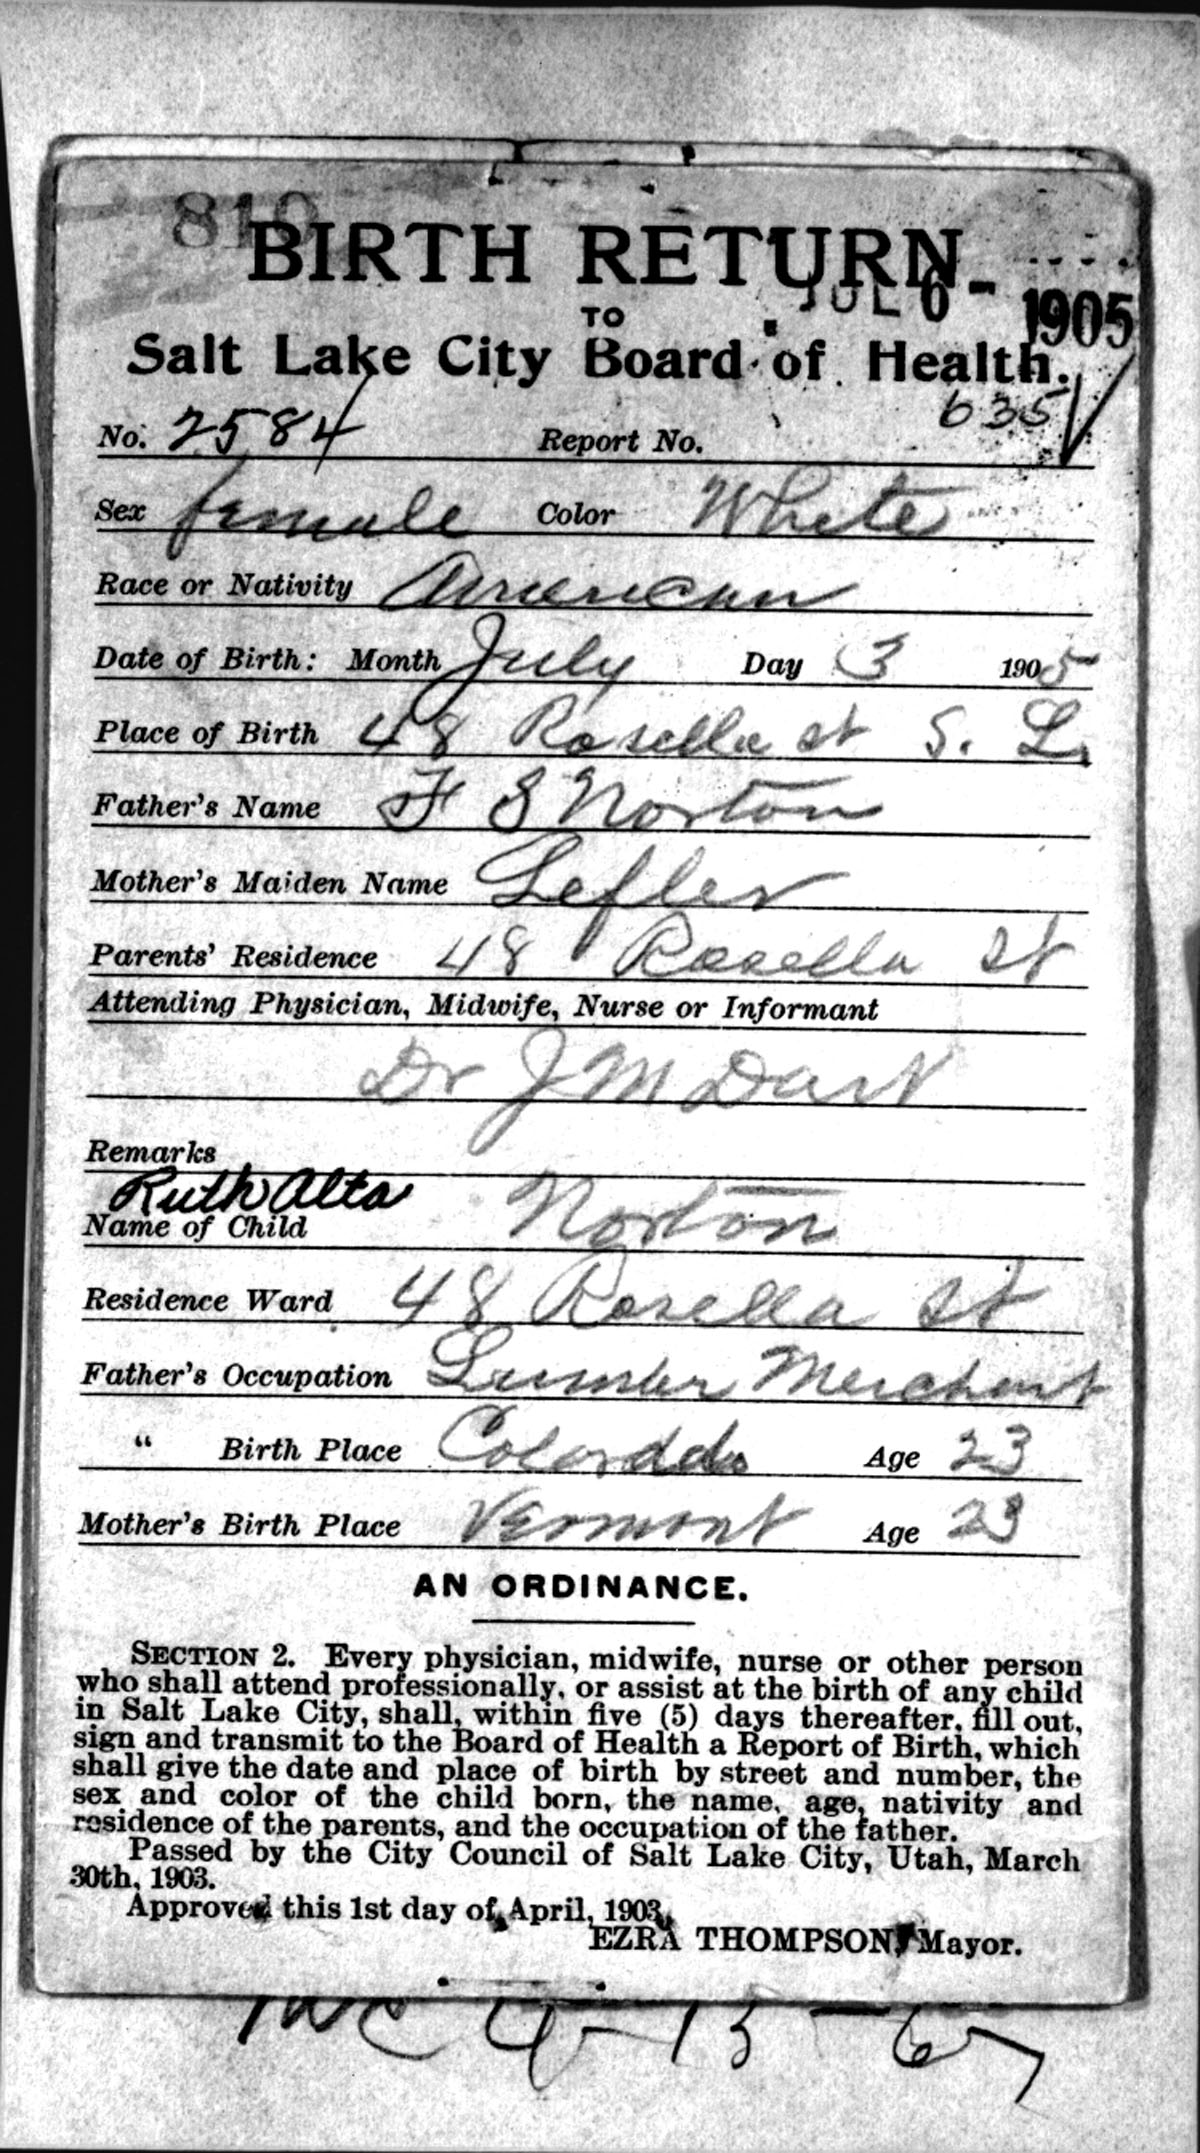 819
BIRTH RETURN
JUL 6 - 1905
TO
Salt Lake City Board of Health.
635
No. 2584 Report No.
Sex female Color White
Race or Nativity American
Date of Birth: Month July Day 3 1905
Place of Birth 48 Rosella st S. L.
Father's Name F S Norton
Mother's Maiden Name Lefler
Parents' Residence 48 Rosella St
Attending Physician, Midwife, Nurse or Informant
Dr J M Dart
Remarks
Ruth Alta
Name of Child Norton
Residence Ward 48 Rosella St
Father's Occupation Lumber Merchant
" Birth Place Colorado Age 23
Mother's Birth Place Vermont Age 23
AN ORDINANCE.
SECTION 2. Every physician, midwife, nurse or other person
who shall attend professionally, or assist at the birth of any child
in Salt Lake City, shall, within five (5) days thereafter, fill out,
sign and transmit to the Board of Health a Report of Birth, which
shall give the date and place of birth by street and number, the
sex and color of the child born, the name, age, nativity and
residence of the parents, and the occupation of the father.
Passed by the City Council of Salt Lake City, Utah, March
30th, 1903.
Approved this 1st day of April, 1903.
EZRA THOMPSON, Mayor.
4-13-67